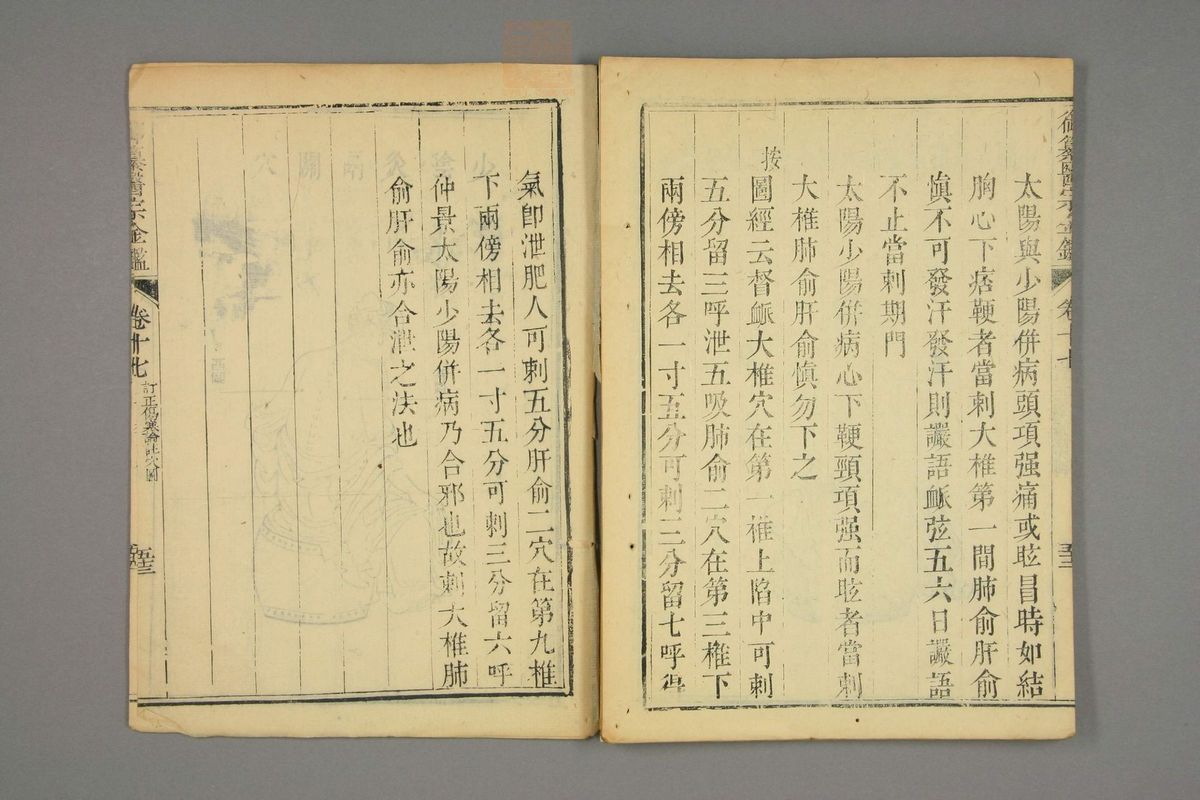 御纂醫宗金鑑 卷十七
太陽與少陽併病頭項强痛或眩冒時如結
胸心下痞鞕者當刺大椎第一間肺俞肝俞
慎不可發汗發汗則讝語脈弦五六日讝語
不止當刺期門
太陽少陽併病心下鞕頸項强而眩者當刺
大椎肺俞肝俞慎勿下之
按
圖經云督脈大椎穴在第一椎上陷中可刺
五分留三呼泄五吸肺俞二穴在第三椎下
兩傍相去各一寸五分可刺三分留七呼得
氣卽泄肥人可刺五分肝俞二穴在第九椎
下兩傍相去各一寸五分可刺三分留六呼
仲景太陽少陽併病乃合邪也故刺大椎肺
俞肝俞亦合泄之法也
御纂醫宗金鑑 卷十七 訂正傷寒論註穴圖 五十三